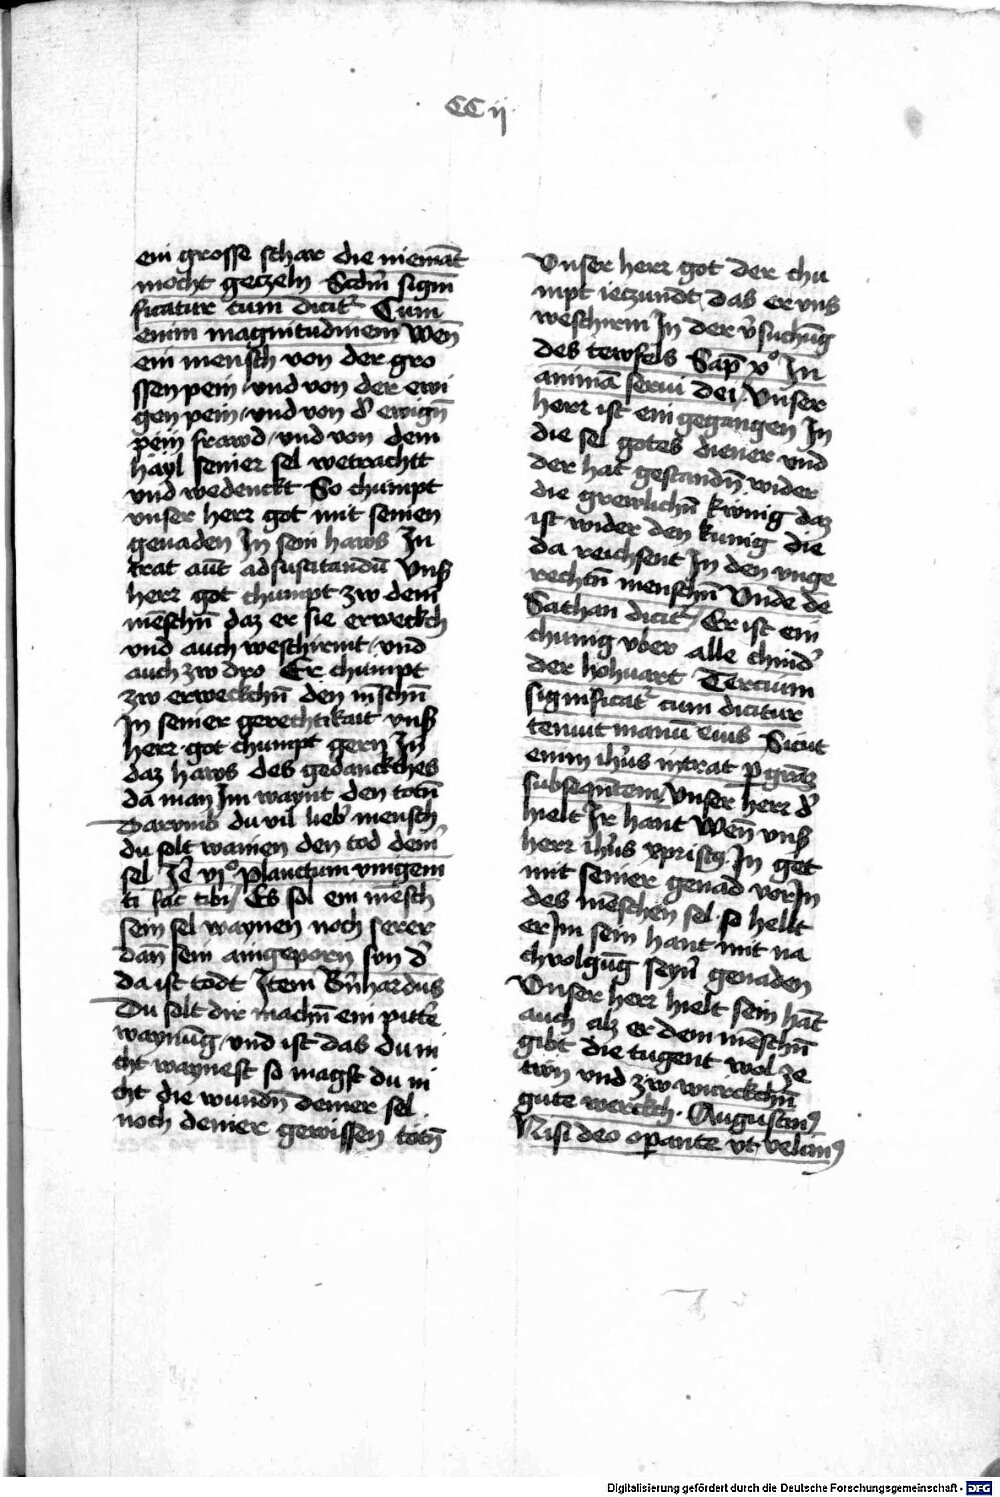 CCij
ein grosse schar die niemāt
mocht geczeln Scdm̄ signi
ficatur cum dicitʳ Cum
enim magnitudinem Wen̄
ein mensch von der gro
ssen pein vnd von der ewi
gen pein / vnd von d̄ ewign̄
pein frawd / vnd von dem
hayl seiner sel wetrachtt
vnd wedenckt So chumpt
vnser herr got mit seinen
genaden In sein haws In
trat aūt ad suscitandū Vnß
herr got chumpt zw dem
mēschn̄ daz er sie erweckch
vnd auch weschirmt / vnd
auch zw dro Er chumpt
zw erweckchn̄ den mēschn̄
In seiner gerechtikait vnß
herr got chumpt gern In
daz haws des gedanckches
da man Im waynt den totn̄
Darvmb du vil lieb̄ mensch
du solt wainen den tod deinr̄
sel Je̅ vjº planctum vnigeni
ti fac tibi / Es sol ein mēsch
sein sel waynen noch serer
dan̄ sein aingeporn sun d̄
da ist todt Item Bn̄hardus
Du solt dir machn̄ ein pittr̄e
waynūg / vnd ist das du ni
cht waynest so magst du ni
cht die wundn̄ deiner sel
noch deiner gewissen totn̄
Vnser herr got der chu
mpt ieczundt das er vns
weschirm In der v̄suchūg
des tewfels Sap̄ xº In
animā servi dei / Vnser
herr ist ein gegangen In
die sel gotes diener vnd
der hat gestandn̄ wider
die grewlichn̄ kwnig daz
ist wider den kunig die
da reichsent In den vnge
rechtn̄ menschn̄ Vnde de
Sathan dicitʳ / Er ist ein
chunig vber alle chind̄
der hohuart Tercium
significatʳ cum dicitur
tenuit manū eius Sicut
enim ihūs intrat p̄ grāz
subsequn̄tem / Vnser herr d̄
hielt Ir hant Wen̄ vnß
herr ihūs xpristꝯ In get
mit seiner genad vor In
des mēschen sel so helt
er Im sein hant mit na
chuolgūg seyn̄ genaden
Vnser herr hielt sein hāt
auch alz er dem mēschn̄
gibt die tugent wol ze
twn vnd zw wurckchn̄
gute werckch . Augustinꝯ
Nisi deo operante vt velimꝯ
Digitalisierung gefördert durch die Deutsche Forschungsgemeinschaft - DFG